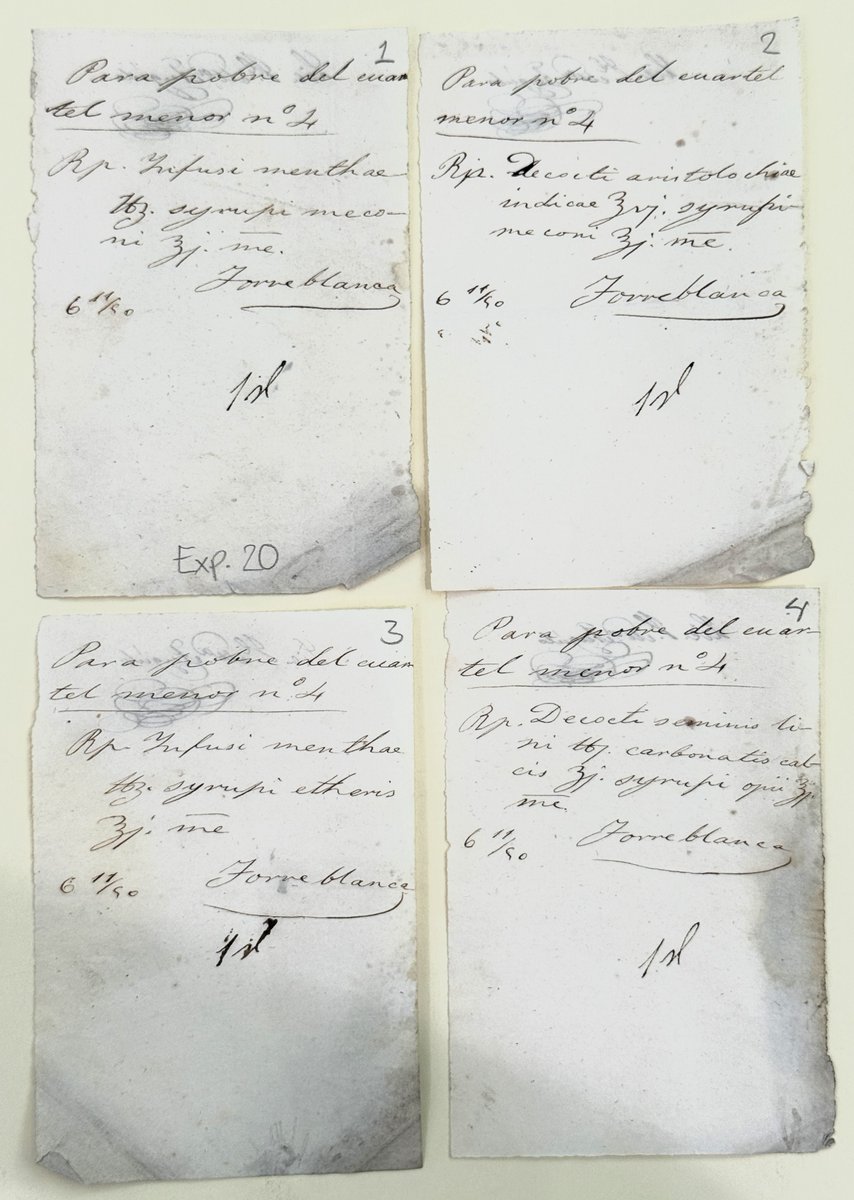 1
Para pobre del cuar
tel menor nº 4
Rp. Infusi menthae
℔ʒ. syrupi meco-
ni ʒj. m̅e̅.
Torreblanca
6 11/90
1 rl
Exp. 20
2
Para pobre del cuartel
menor nº 4
Rp. Decocti aristolochiae
indicae ʒvj. syrupi
meconi ʒj. m̅e̅.
6 11/90
Torreblanca
1 rl
3
Para pobre del cuar
tel menor nº 4
Rp. Infusi menthae
℔ʒ. syrupi etheris
ʒj. m̅e̅
6 11/90
Torreblanca
1 rl
4
Para pobre del cuar-
tel menor nº 4
Rp. Decocti seminis li-
ni ℔j. carbonatis cal-
cis ʒj. syrupi opii ʒj.
m̅e̅.
6 11/90
Torreblanca
1 rl